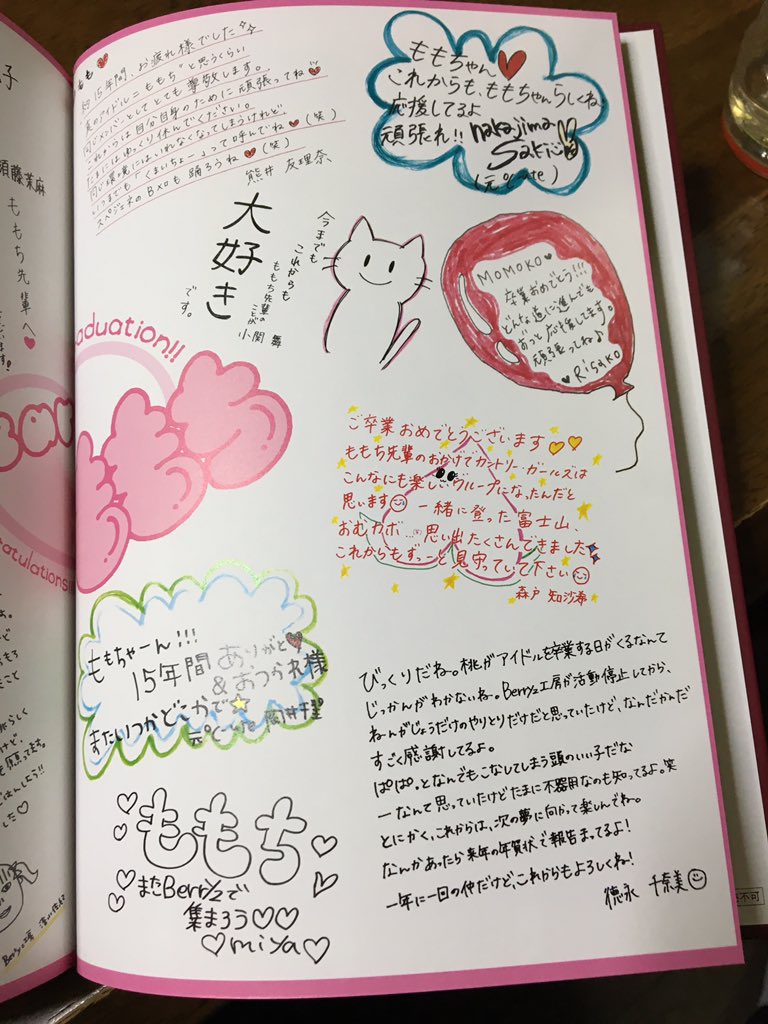 もも
15年間、お疲れ様でした
真のアイドル＝ももち"と思うくらい
同じメンバーとしてとても尊敬します。
これからは自分自身のために頑張ってね
たまにはゆっくり休んでください。
同じ環境にはいれなくなってしまうけれど、
いつまでも「くまいちょー」って呼んでね(笑)
スペジェネのBメロも踊ろうね(笑)
熊井 友理奈
ももちゃん
これからも、ももちゃんらしくね
応援してるよ
頑張れ!!
nakajima
Saki
(元℃-ute)
今までも
これからも
ももち先輩の
ことが
大好き
です。
小関 舞
MOMOKO
卒業おめでとう!!!
どんな道に進んでも
ずっと応援してます。
頑張ってね♪
Risako
ご卒業おめでとうございます
ももち先輩のおかげでカントリー・ガールズは
こんなにも楽しいグループになったんだと
思います 一緒に登った富士山、
おむカボ…思い出たくさんできました
これからもずーっと見守っていて下さい
森戸 知沙希
ももちゃーん!!!
15年間ありがと
&おつかれ様
またいつかどこかで
元℃-ute 岡井千聖
ももち
またBerryzで
集まろう♡♡
♡miya♡
びっくりだね。桃がアイドルを卒業する日がくるなんて
じっかんがわかないね。Berryz工房が活動停止してから、
ねんがじょうだけのやりとりだけだと思っていたけど、なんだかんだ
すごく感謝してるよ。
ぱぱっとなんでもこなしてしまう頭のいい子だな
ーなんて思っていたけどたまに不器用なのも知ってるよ。笑
とにかく、これからは、次の夢に向かって楽しんでねっ。
なんかあったら来年の年賀状で報告まってるよ!
一年に一回の仲だけど、これからもよろしくね!
徳永 千奈美
須藤茉麻
ももち先輩へ
aduation!!
atulations!!